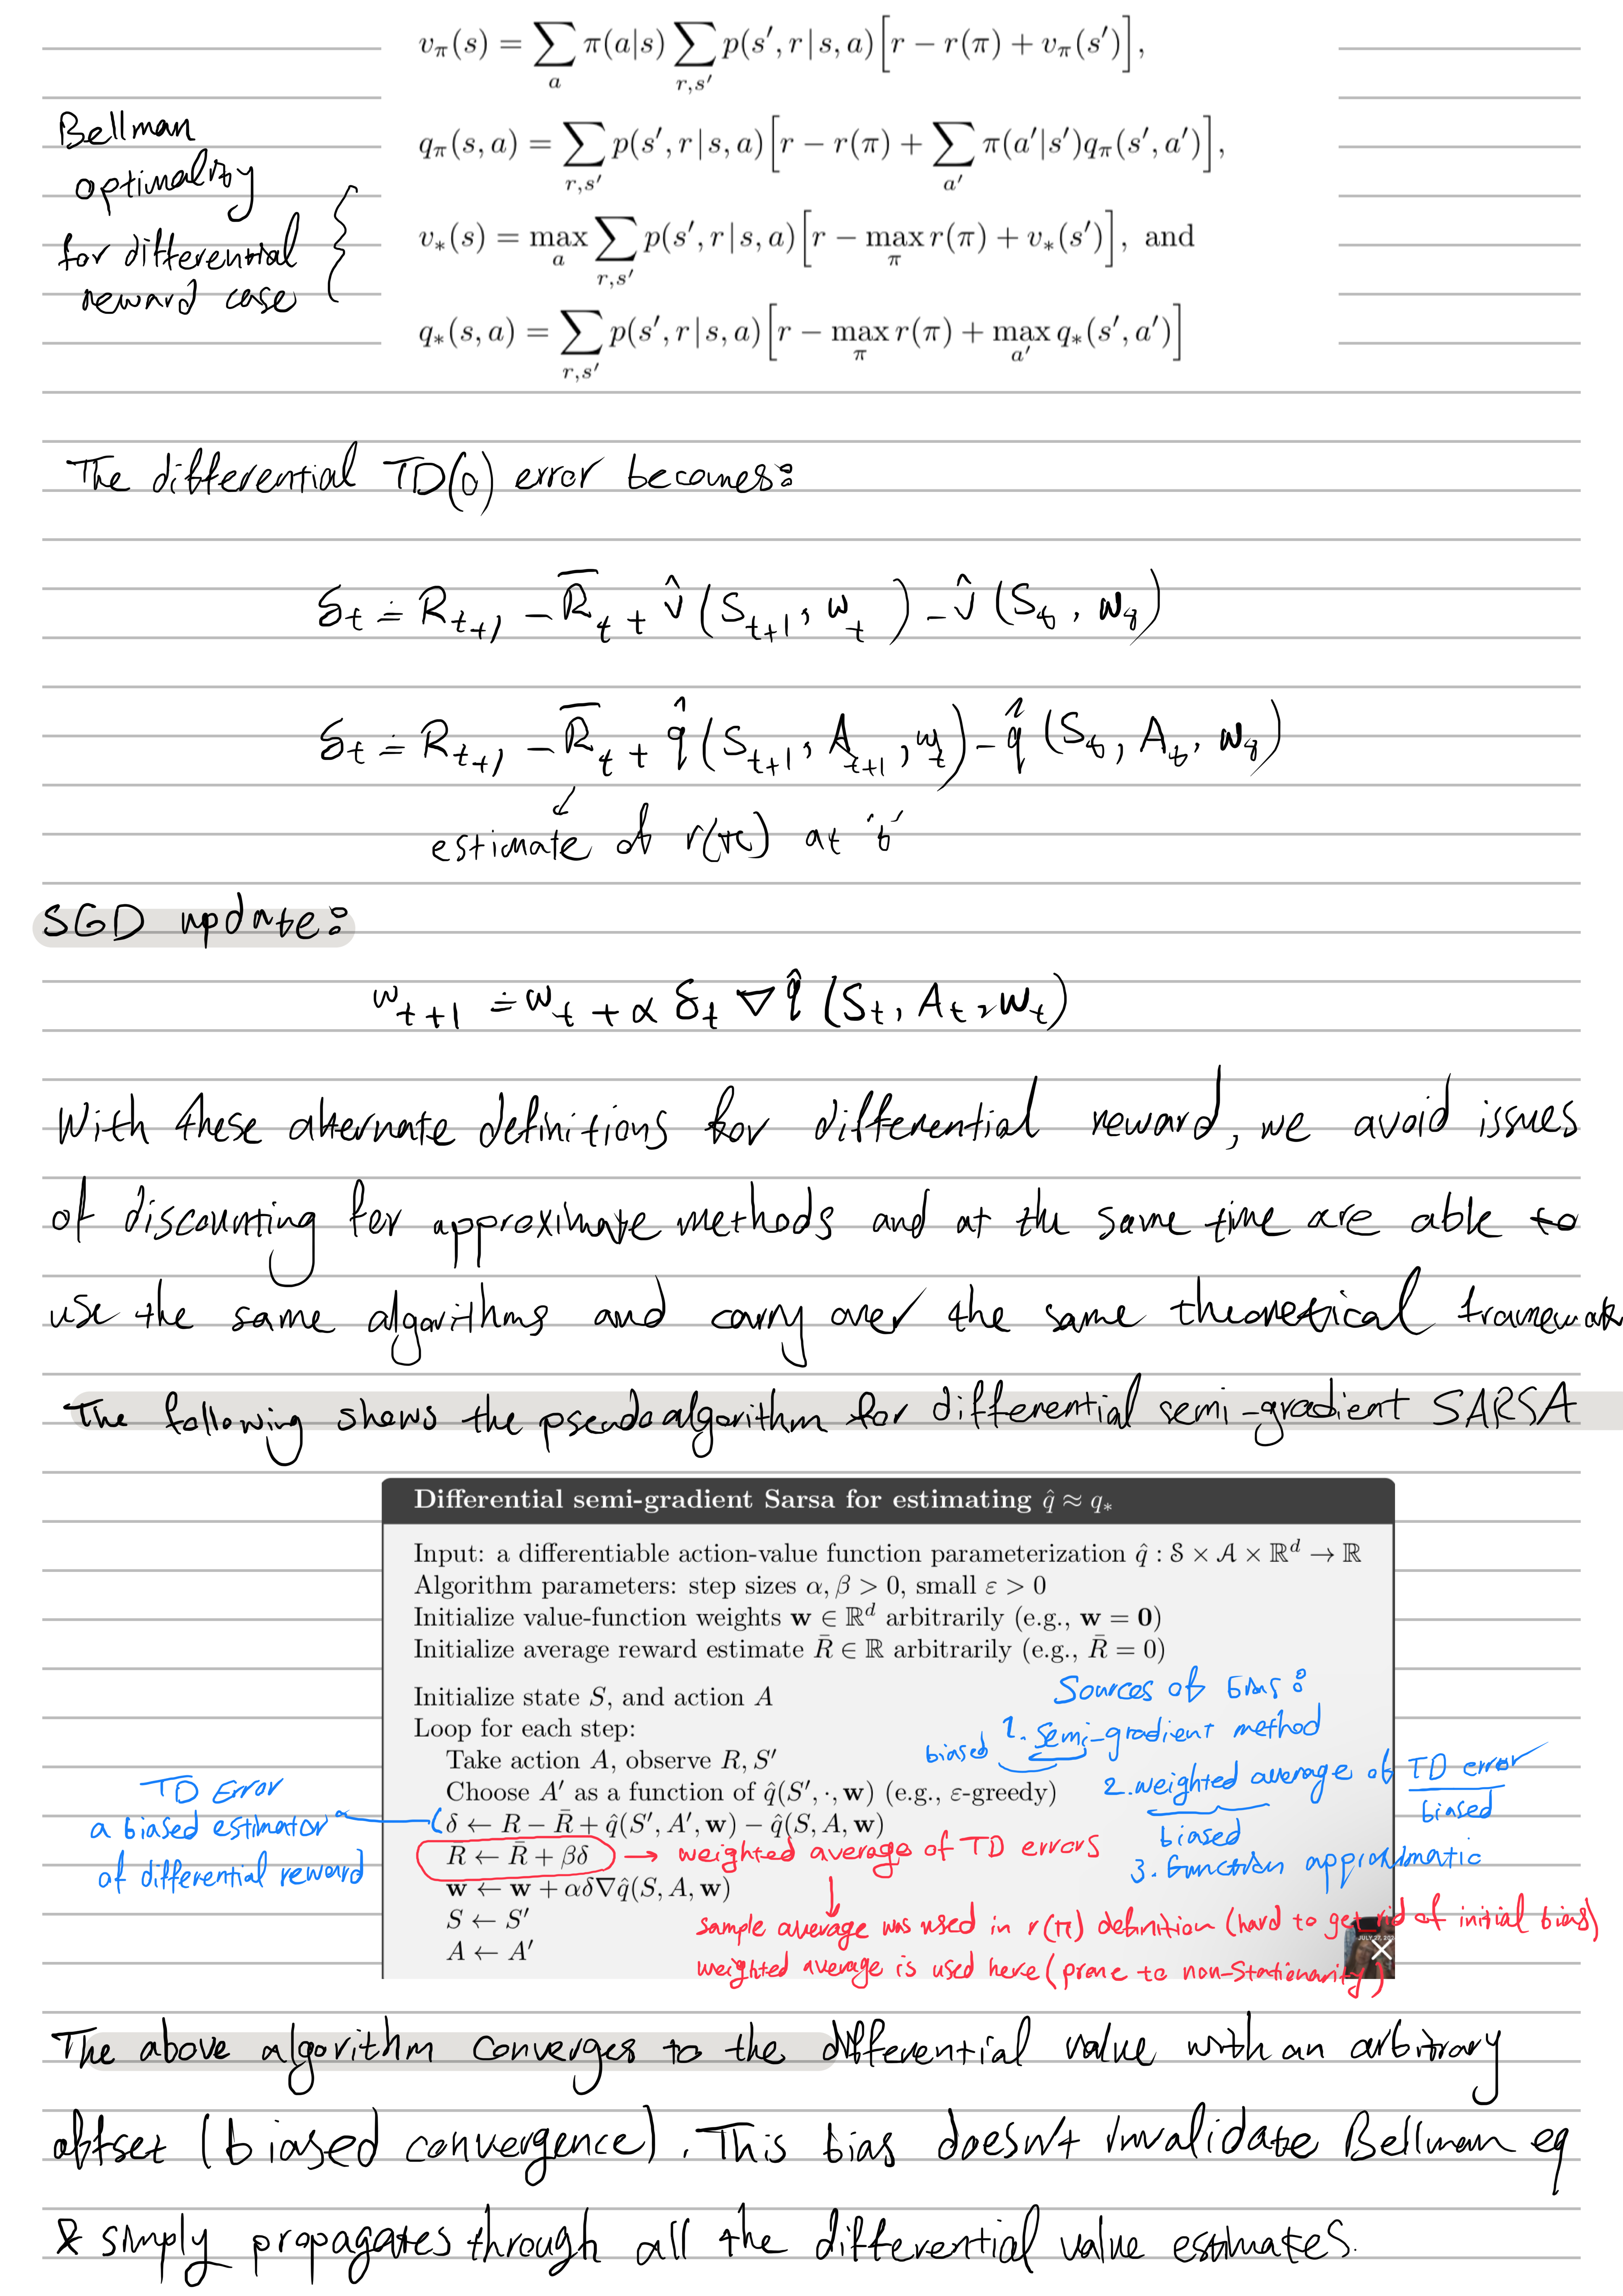 v_π(s) = ∑_a π(a|s) ∑_{r,s'} p(s', r|s, a)[r − r(π) + v_π(s')],
q_π(s, a) = ∑_{r,s'} p(s', r|s, a)[r − r(π) + ∑_{a'} π(a'|s')q_π(s', a')],
v_*(s) = max_a ∑_{r,s'} p(s', r|s, a)[r − max_π r(π) + v_*(s')], and
q_*(s, a) = ∑_{r,s'} p(s', r|s, a)[r − max_π r(π) + max_{a'} q_*(s', a')]
Bellman
optimality
for differential
reward case
The differential TD(0) error becomes:
δ_t ≐ R_{t+1} − R̄_t + v̂(S_{t+1}, w_t) − v̂(S_t, w_t)
δ_t ≐ R_{t+1} − R̄_t + q̂(S_{t+1}, A_{t+1}, w_t) − q̂(S_t, A_t, w_t)
estimate of r(π) at 't'
SGD update:
w_{t+1} ≐ w_t + α δ_t ∇q̂(S_t, A_t, w_t)
With these alternate definitions for differential reward, we avoid issues
of discounting for approximate methods and at the same time are able to
use the same algorithms and carry over the same theoretical framework
The following shows the pseudoalgorithm for differential semi-gradient SARSA
Differential semi-gradient Sarsa for estimating q̂ ≈ q_*
Input: a differentiable action-value function parameterization q̂ : S × A × ℝ^d → ℝ
Algorithm parameters: step sizes α, β > 0, small ε > 0
Initialize value-function weights w ∈ ℝ^d arbitrarily (e.g., w = 0)
Initialize average reward estimate R̄ ∈ ℝ arbitrarily (e.g., R̄ = 0)
Initialize state S, and action A
Loop for each step:
Take action A, observe R, S'
Choose A' as a function of q̂(S', ·, w) (e.g., ε-greedy)
δ ← R − R̄ + q̂(S', A', w) − q̂(S, A, w)
R̄ ← R̄ + βδ → weighted average of TD errors
w ← w + αδ∇q̂(S, A, w)
S ← S'
A ← A'
Sources of bias:
1. Semi-gradient method
biased
2. weighted average of TD error
biased
biased
3. Function approximatic
TD Error
a biased estimator
of differential reward
sample average was used in r(π) definition (hard to get rid of initial bias)
weighted average is used here (prone to non-Stationarity)
The above algorithm converges to the differential value with an arbitrary
offset (biased convergence). This bias doesn't invalidate Bellman eq
& simply propagates through all the differential value estimates.